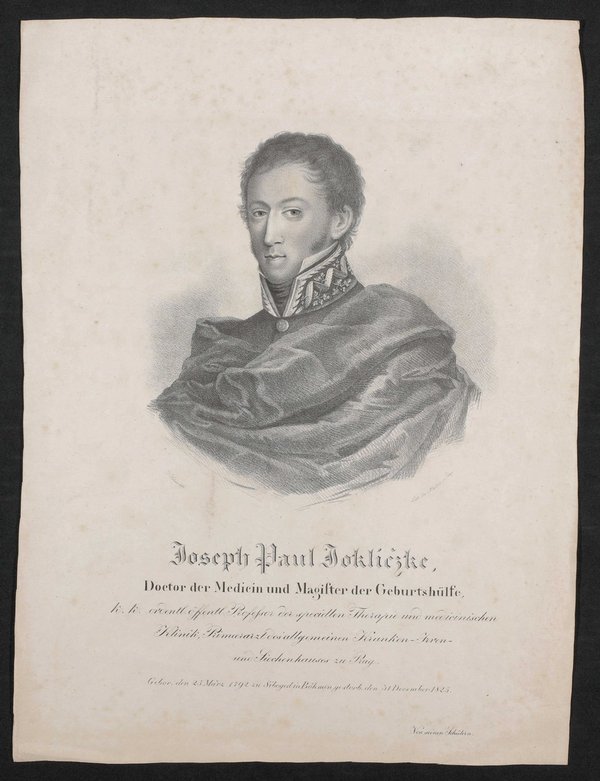 Joseph Paul Jokliczke,
Doctor der Medicin und Magister der Geburtshülfe,
k. k. ordentl. öffentl. Professor der speciellen Therapie und medicinischen
Klinik, Primararzt des allgemeinen Kranken-Irren-
und Siechenhauses zu Prag.
Gebor. den 25 März 1792 zu in Böhmen, gestorb. den 31 December 1825.
Von seinen Schülern.